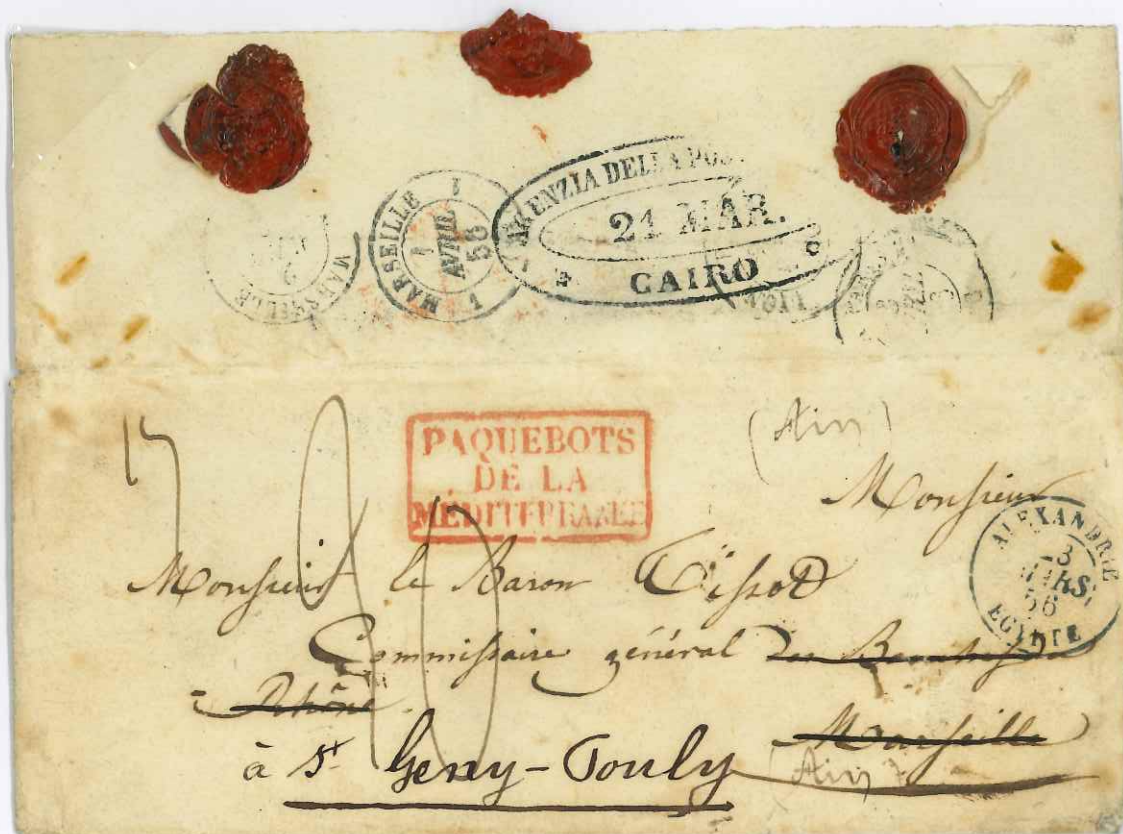 MARSEILLE
MARSEILLE 1 AVRIL 56
AGENZIA DELLA POS
21 MAR.
CAIRO
PAQUEBOTS
DE LA
MÉDITERRANÉE
(Ain)
Monsieur
ALEXANDRIE
MARS
56
EGYPTE
Monsieur le Baron Tissot
Commissaire général des Bouches du
- Rhône
Marseille
à St Geny-Pouly (Ain)